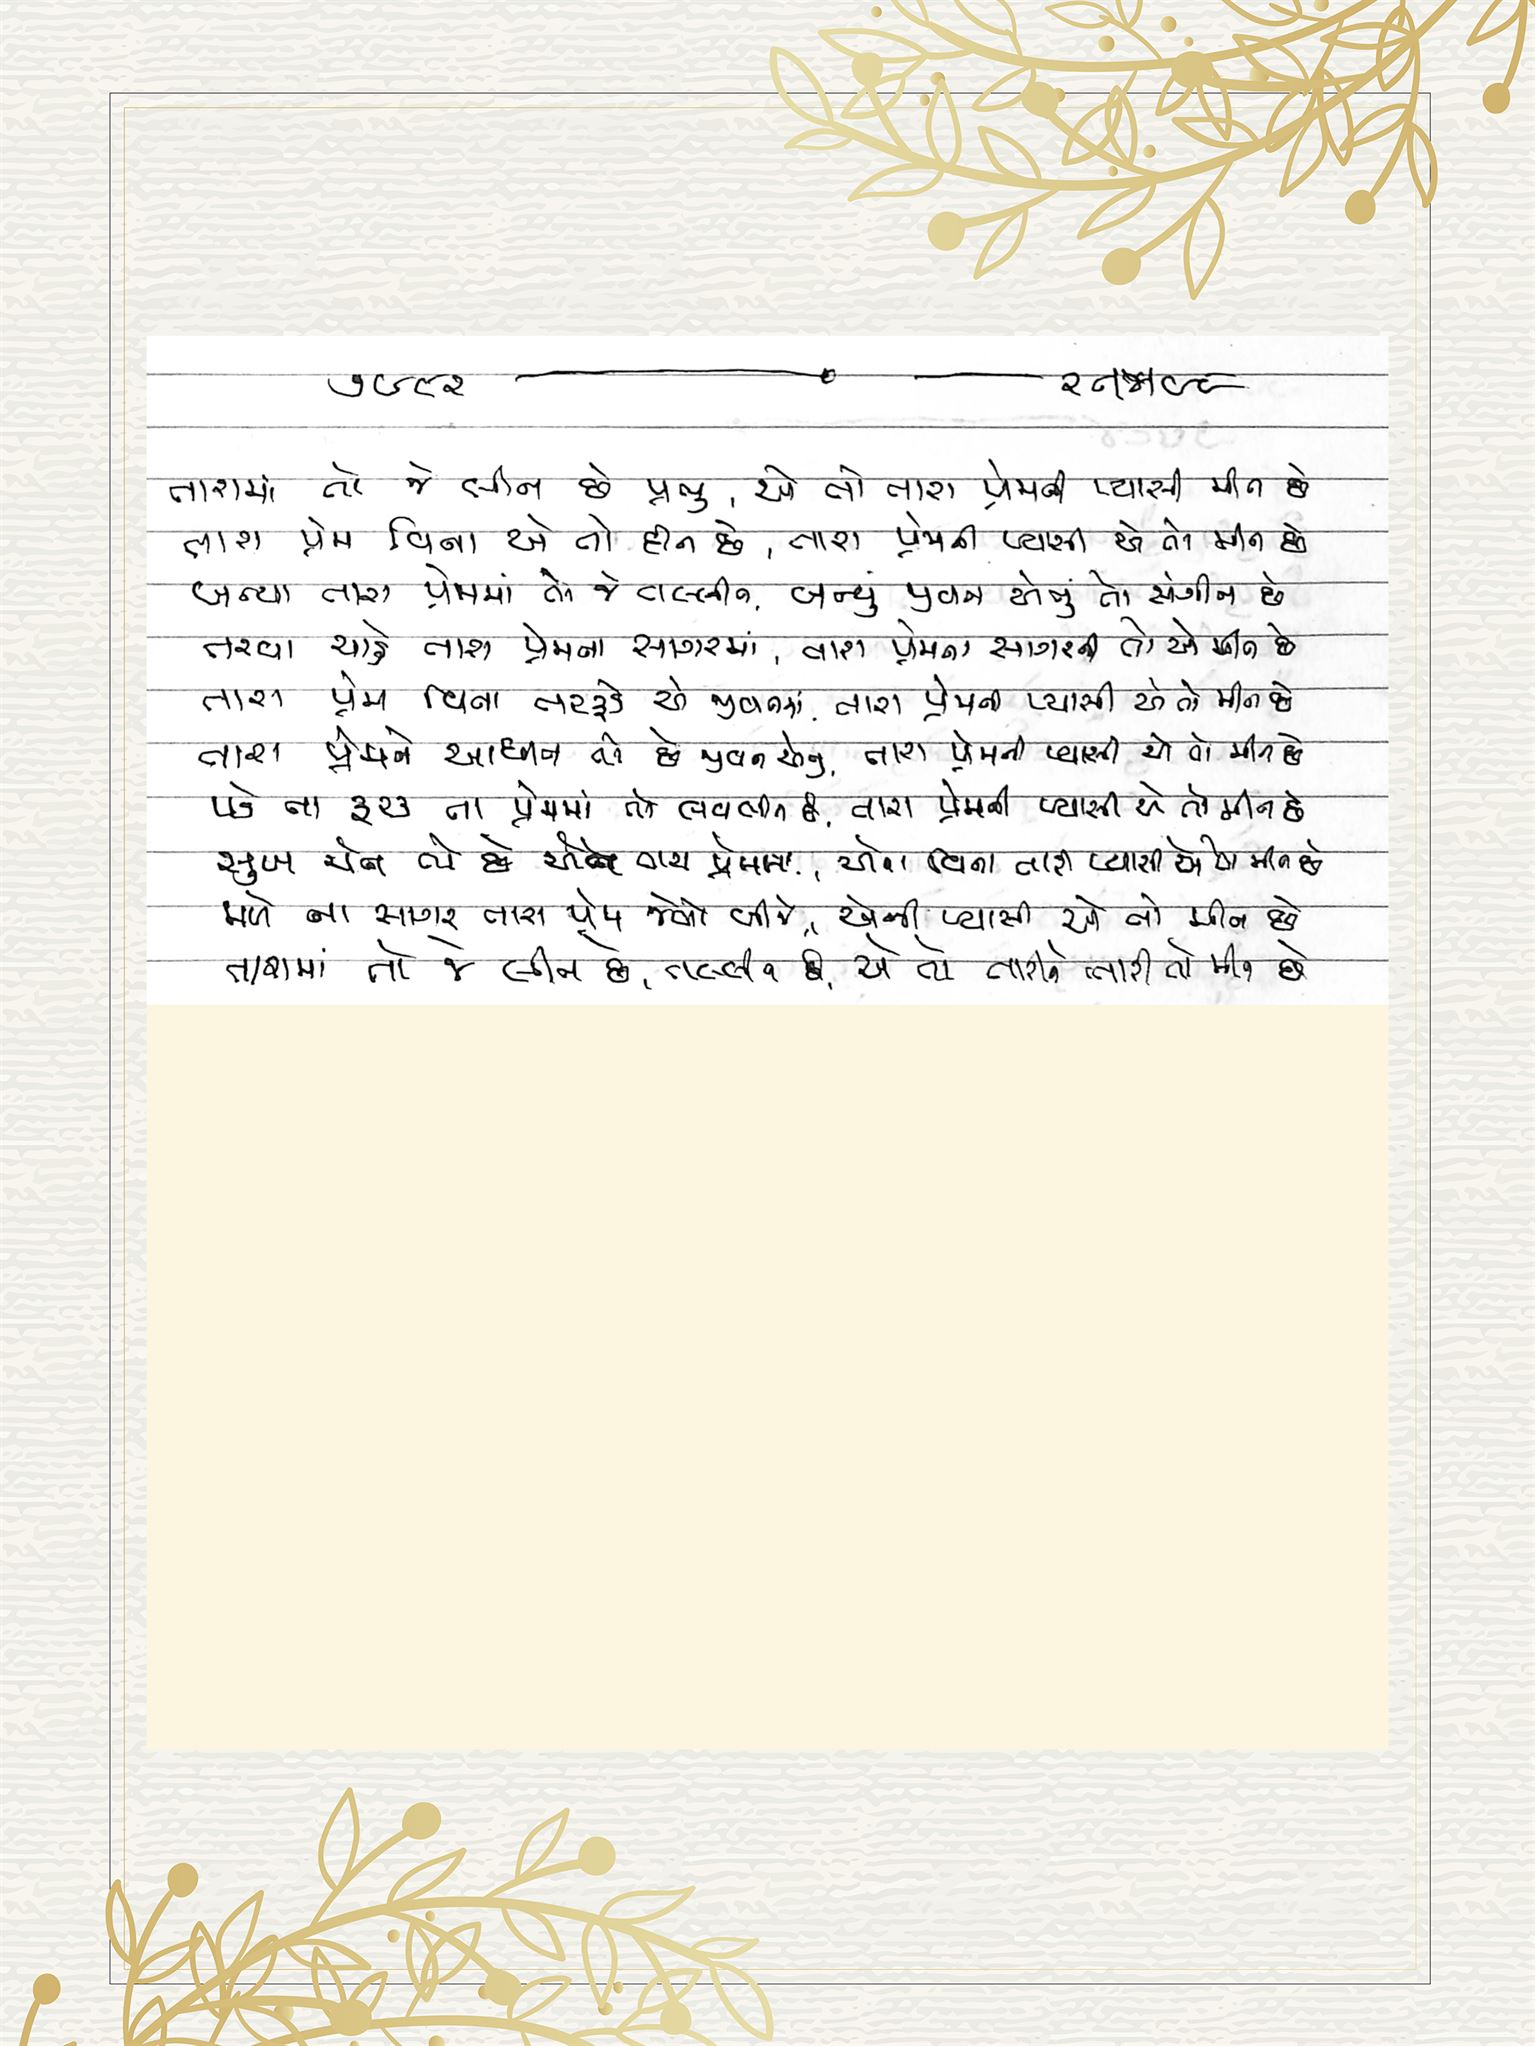 તારામાં તો જે લીન છે પ્રભુ, એ તો તારા પ્રેમની પ્યાસી મીન છે
તારા પ્રેમ વિના એ તો હીન છે, તારા પ્રેમની પ્યાસી એ તો મીન છે
બન્યા તારા પ્રેમમાં તો જે તલ્લીન, બન્યું જીવન એનું તો સંગીન છે
તરવા ચાહે તારા પ્રેમના સાગરમાં, તારા પ્રેમના સાગરની તો એ મીન છે
તારા પ્રેમ વિના તરફડે એ જીવનમાં, તારા પ્રેમની પ્યાસી એ તો મીન છે
તારા પ્રેમને આધીન તો છે જીવન એનું, તારા પ્રેમની પ્યાસી એ તો મીન છે
પડે ના ફરક ના પ્રેમમાં તો લવલીન છે, તારા પ્રેમની પ્યાસી એ તો મીન છે
સુખ ચેન તો છે એને તારા પ્રેમમાં, એના વિના તારી પ્યાસી એ તો મીન છે
મળે ના સાગર તારા પ્રેમ જેવો બીજે, એની પ્યાસી એ તો મીન છે
તારામાં તો જે લીન છે, તલ્લીન છે, એ તો તારીને તારી તો મીન છે